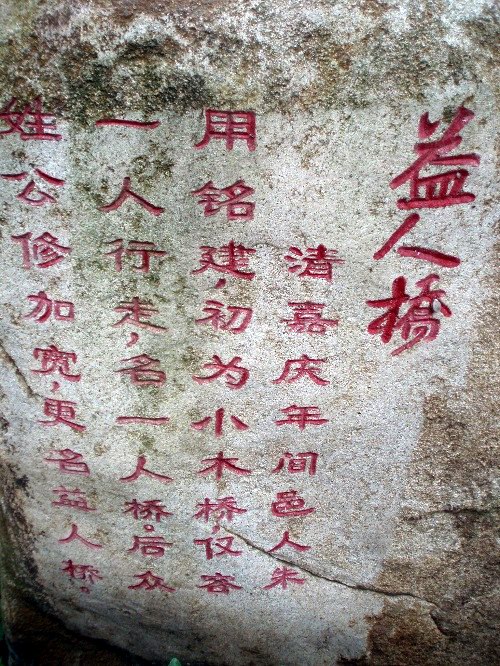 益人桥
清嘉庆年间邑人朱
用铭建，初为小木桥，仅容
一人行走，名一人桥。后众
姓公修加宽，更名益人桥。